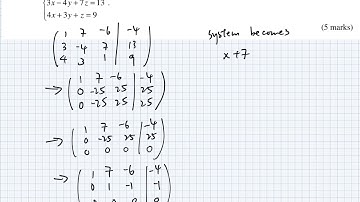 3x − 4y + 7z = 13 .
4x + 3y + z = 9
(5 marks)
1 7 -6 | -4
3 -4 7 | 13
4 3 1 | 9
System becomes
x + 7
→ 1 7 -6 | -4
0 -25 25 | 25
0 -25 25 | 25
→ 1 7 -6 | -4
0 -25 25 | 25
0 0 0 | 0
→ 1 7 -6 | -4
0 1 -1 | -1